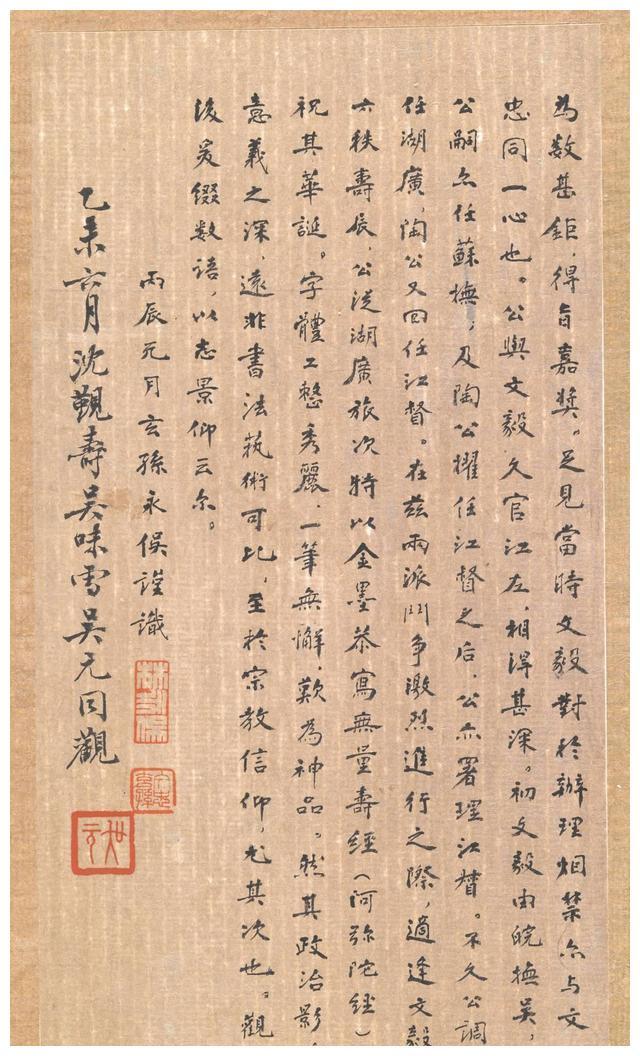 為数甚鉅，得旨嘉奖。足見當時文毅對於辦理烟禁亦与文
忠同一心也。公與文毅久官江左，相得甚深。初文毅由皖撫吴，
公嗣亦任蘇撫，及陶公擢任江督之后，公亦署理江督。不久公調
任湖廣，陶公又回任江督。在兹兩派鬥争激烈進行之際，適逢文毅
六秩壽辰，公從湖廣旅次特以金墨恭寫無量壽經（阿弥陀經）
祝其華誕。字體工整秀麗，一筆無懈，歎為神品。然其政治影，
意義之深，遠非書法執術可比，至於宗教信仰，尤其次也。觀
後爰缀数語，以志景仰云尔。
丙辰元月玄孫永俁謹識
乙未六月沈觐壽吴味雪吴元同觀